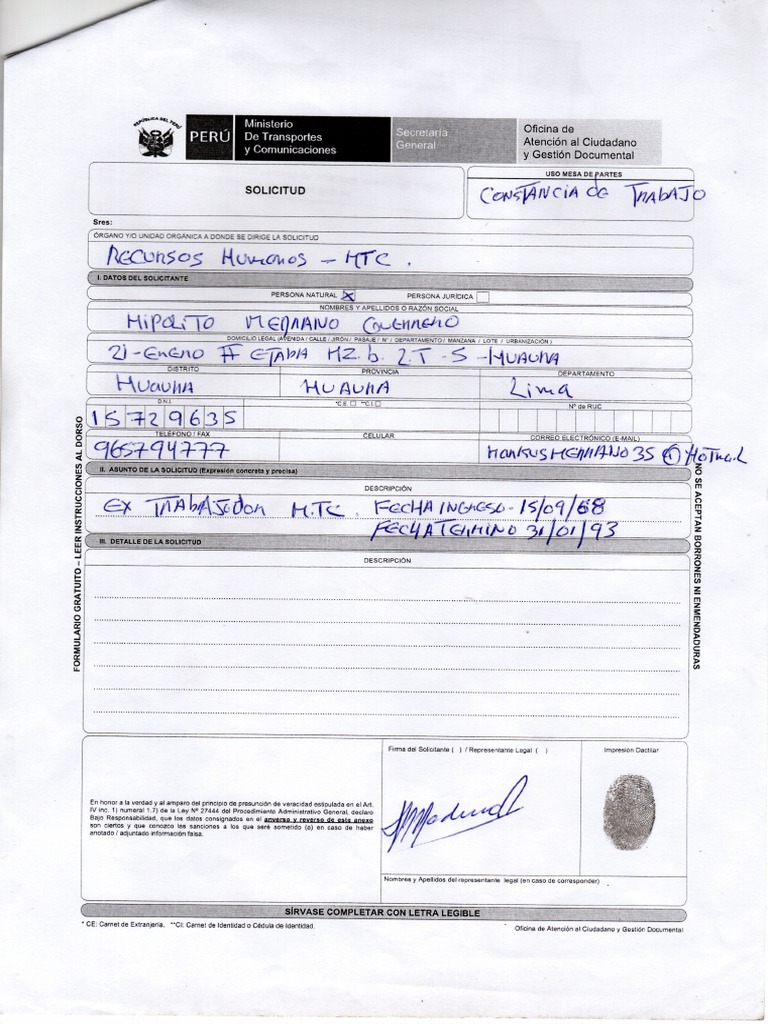 REPÚBLICA DEL PERÚ
PERÚ
Ministerio
De Transportes
y Comunicaciones
Secretaría
General
Oficina de
Atención al Ciudadano
y Gestión Documental
SOLICITUD
USO MESA DE PARTES
CONSTANCIA de TRABAJO
Sres:
ÓRGANO Y/O UNIDAD ORGÁNICA A DONDE SE DIRIGE LA SOLICITUD
RECURSOS HUMANOS - MTC.
I. DATOS DEL SOLICITANTE
PERSONA NATURAL X PERSONA JURÍDICA
NOMBRES Y APELLIDOS O RAZÓN SOCIAL
HIPOLITO MEDRANO GUERRERO
DOMICILIO LEGAL (AVENIDA / CALLE / JIRÓN / PASAJE / N° / DEPARTAMENTO / MANZANA / LOTE / URBANIZACIÓN )
21-ENERO II ETAPA MZ. b. LT-5-HUAURA
DISTRITO PROVINCIA DEPARTAMENTO
HUAURA HUAURA Lima
D.N.I. *C.E. **C.I. N° de RUC
15729635
TELÉFONO / FAX CELULAR CORREO ELECTRÓNICO (E-MAIL)
965794777 MEDRANO35@HoTmail
II. ASUNTO DE LA SOLICITUD (Expresión concreta y precisa)
DESCRIPCIÓN
EX TRABAJADOR M.TC. FECHA INGRESO - 15/09/68
FECHA TERMINO 31/01/93
III. DETALLE DE LA SOLICITUD
DESCRIPCIÓN
FORMULARIO GRATUITO – LEER INSTRUCCIONES AL DORSO
NO SE ACEPTAN BORRONES NI ENMENDADURAS
En honor a la verdad y al amparo del principio de presunción de veracidad estipulada en el Art.
IV inc. 1) numeral 1.7) de la Ley Nº 27444 del Procedimiento Administrativo General, declaro
Bajo Responsabilidad, que los datos consignados en el anverso y reverso de este anexo
son ciertos y que conozco las sanciones a los que seré sometido (a) en caso de haber
anotado / adjuntado información falsa.
Firma del Solicitante ( ) / Representante Legal ( )
Impresión Dactilar
Nombres y Apellidos del representante legal (en caso de corresponder)
SÍRVASE COMPLETAR CON LETRA LEGIBLE
* CE: Carnet de Extranjería. **CI: Carnet de Identidad o Cédula de Identidad.
Oficina de Atención al Ciudadano y Gestión Documental